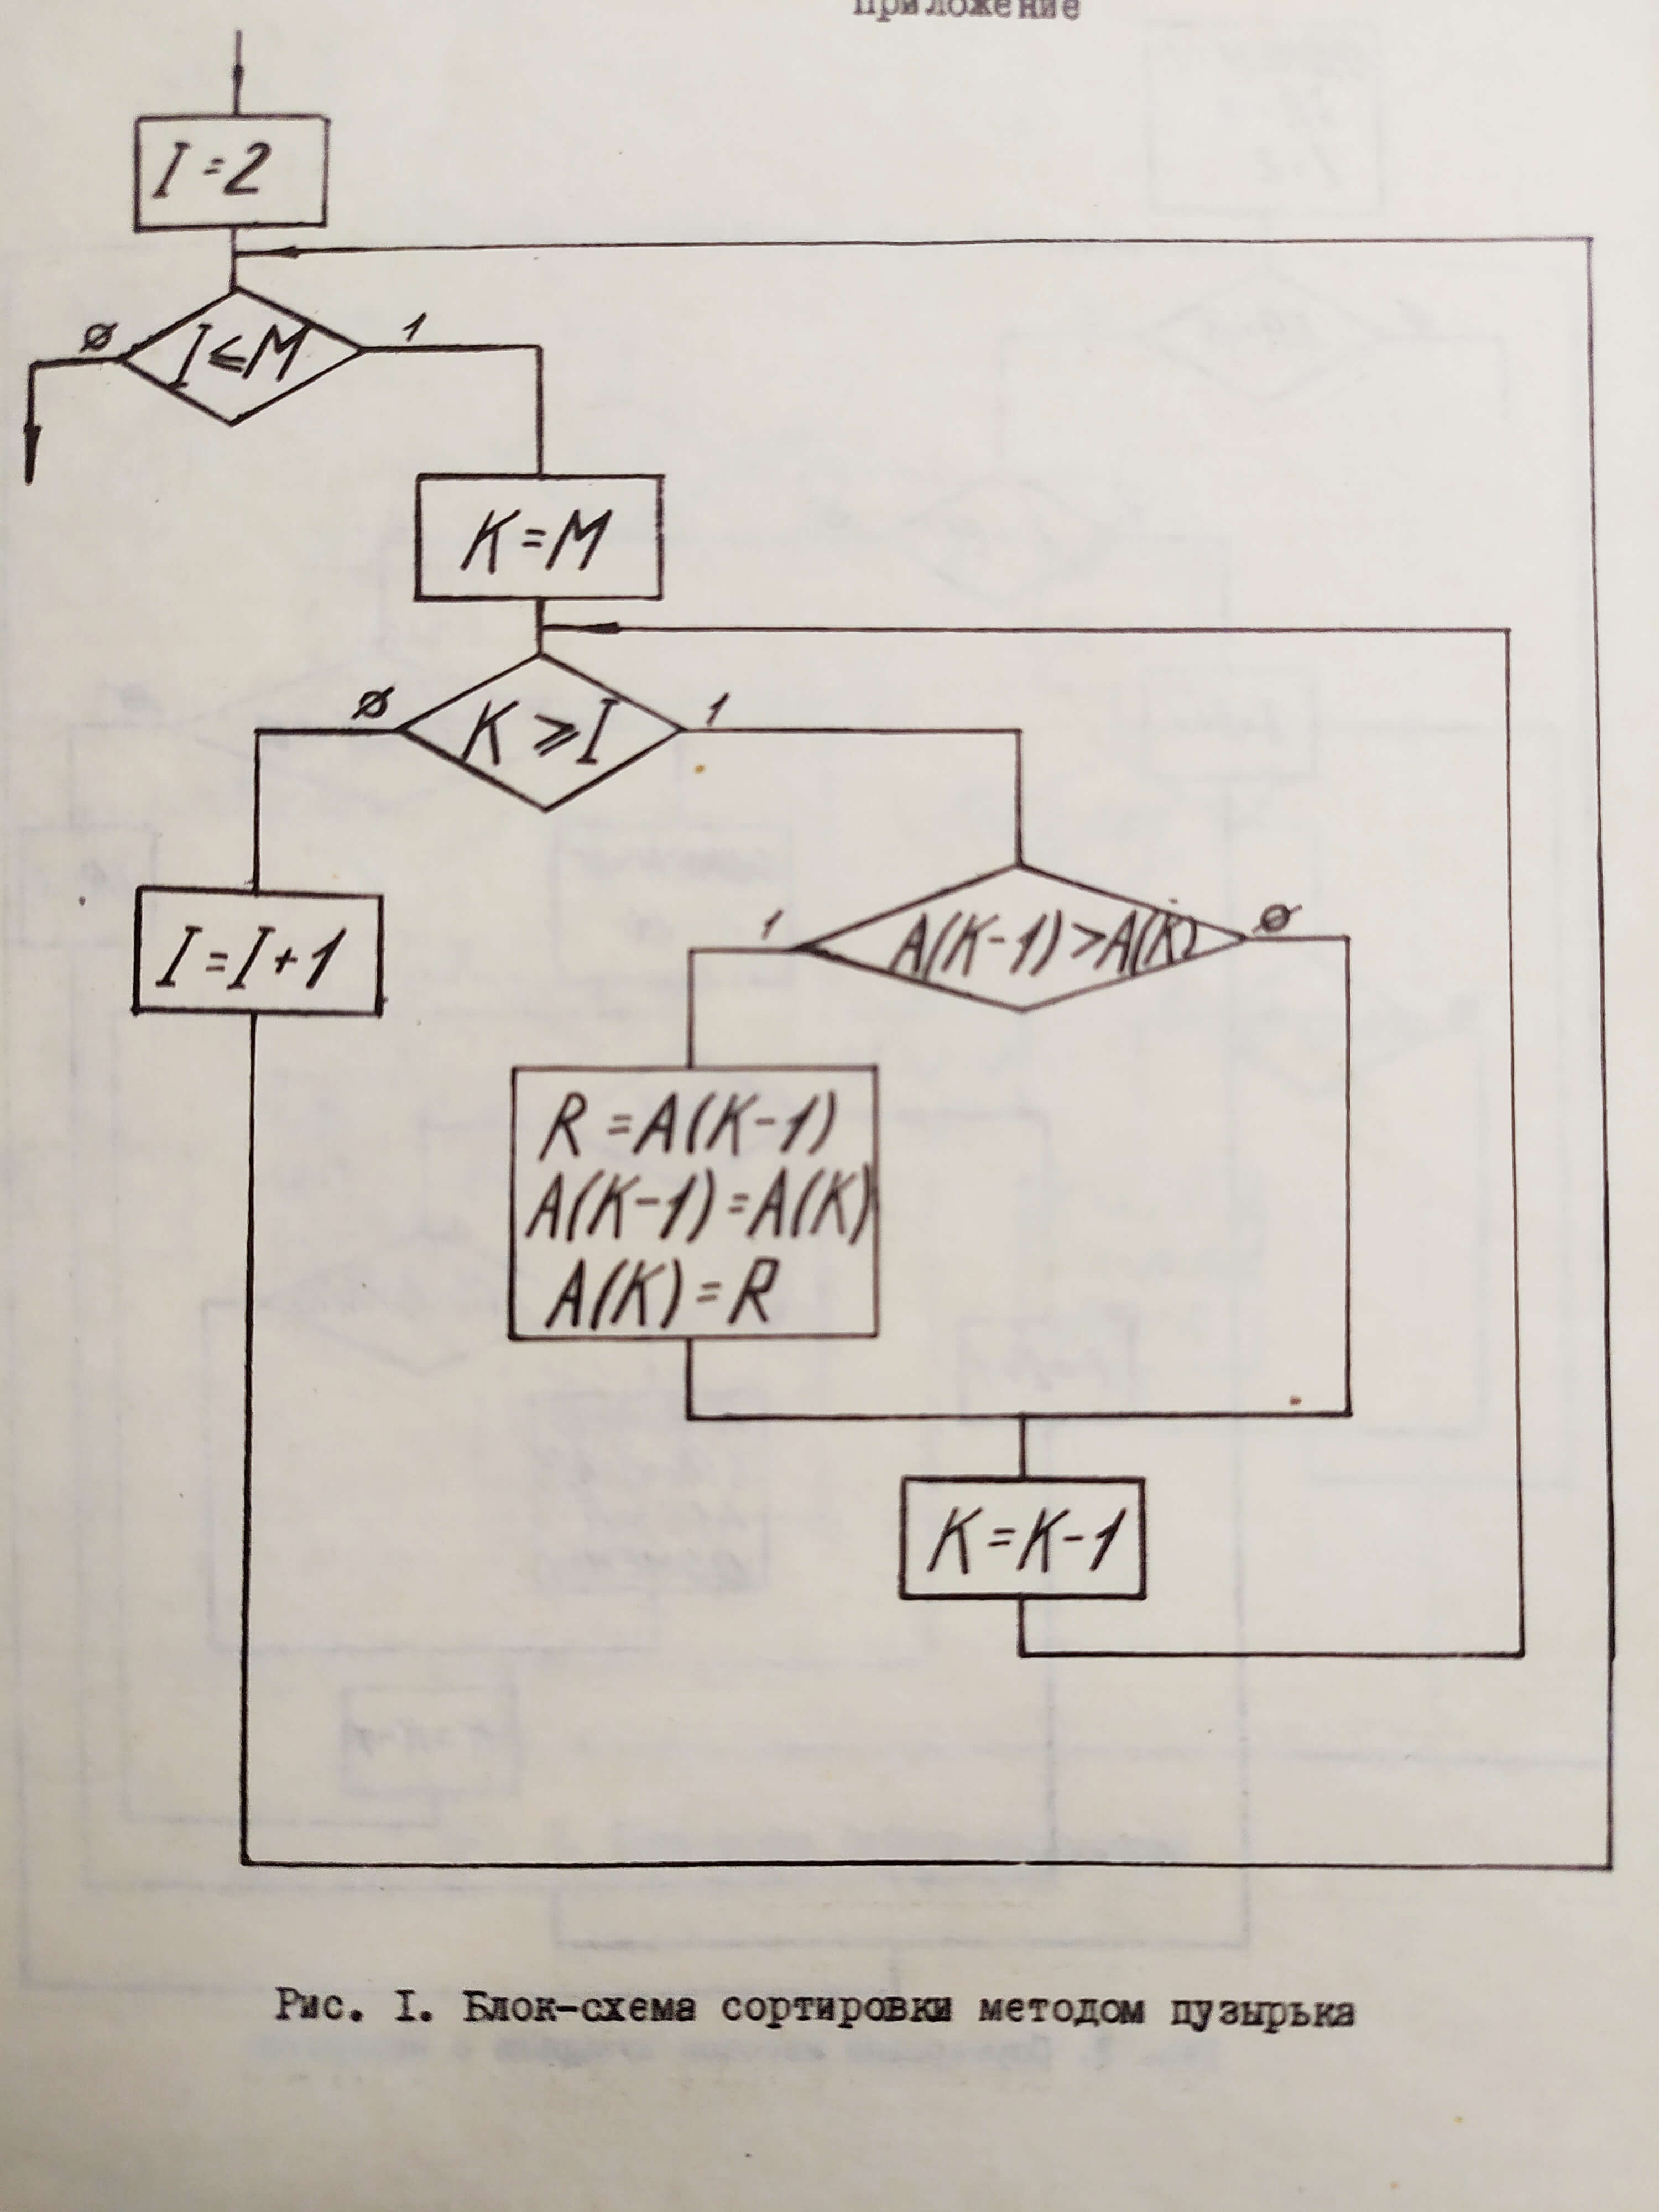 приложение
I=2
ø
I≤M
1
K=M
ø
K≥I
1
I=I+1
1
A(K-1)>A(K)
ø
R=A(K-1)
A(K-1)=A(K)
A(K)=R
K=K-1
Рис. I. Блок-схема сортировки методом пузырька